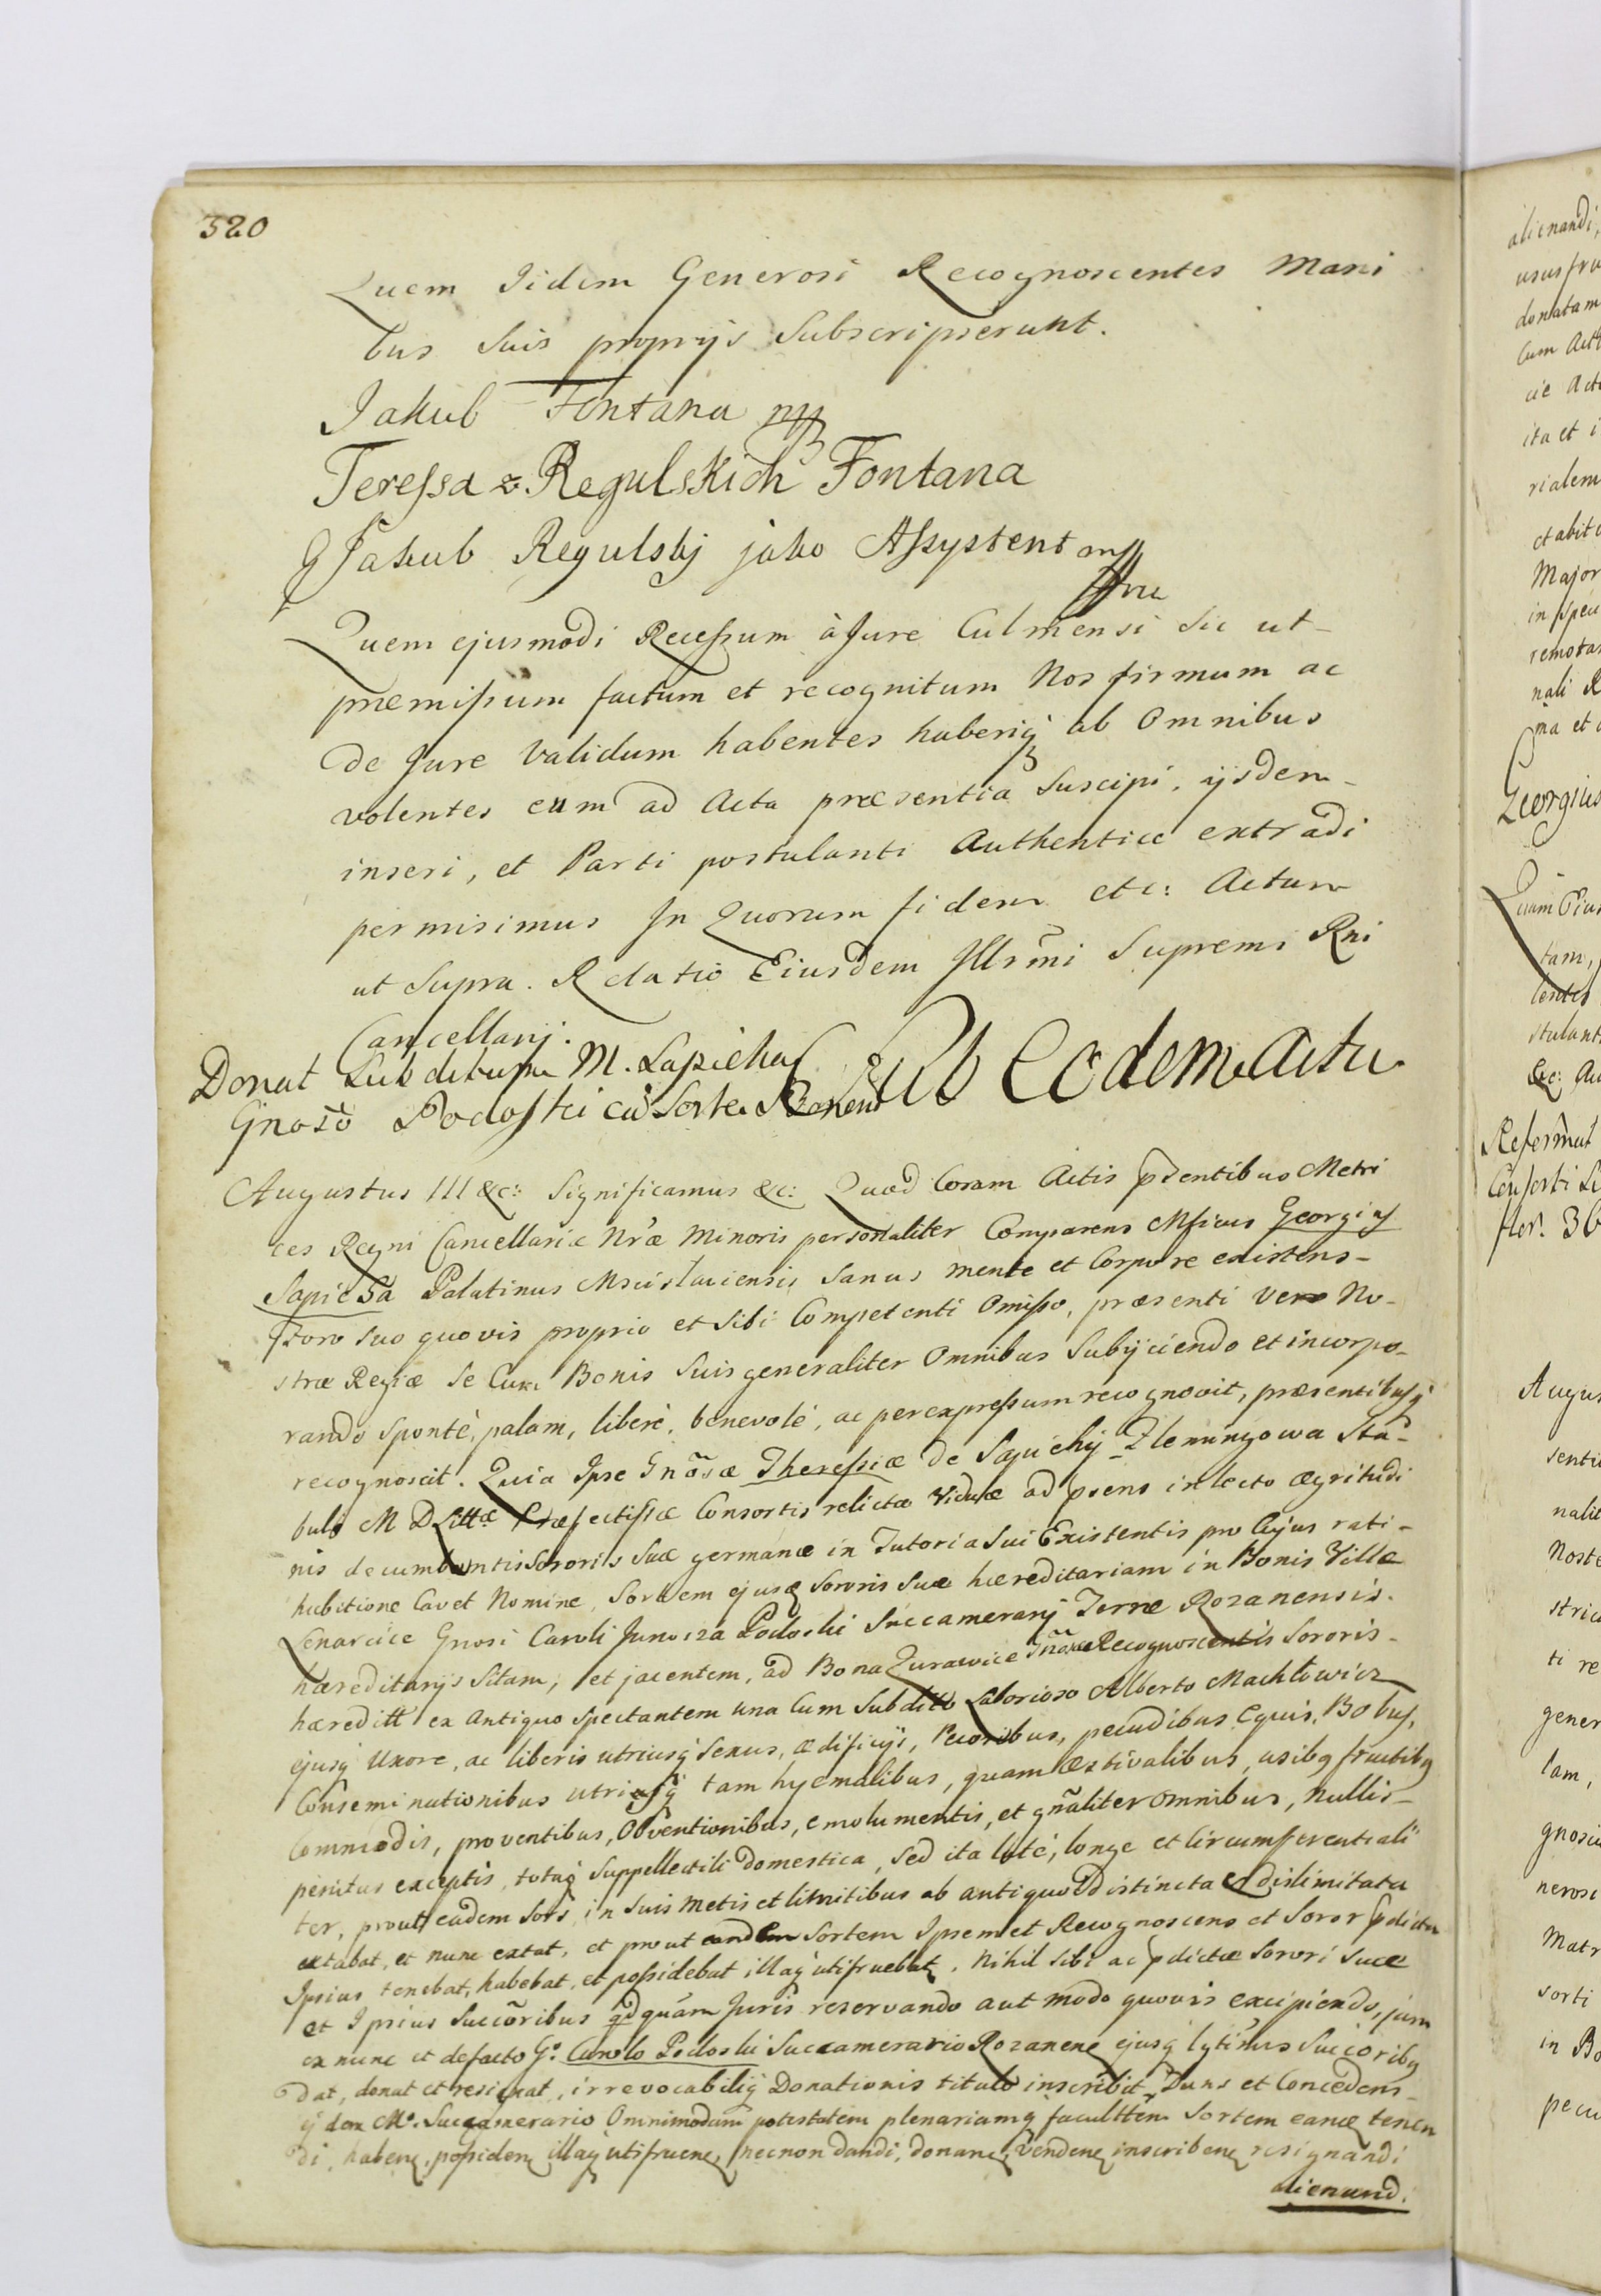 320
Quem Iidem Generosi Recognoscentes Mani
bus suis proprijs Subscripserunt.
Jakub Fontana mp
Teressa z Regulskich Fontana
Jakub Regulskj jako Assystent mp
Quem ejusmodi Recessum à Jure Culmensi sic ut-
præmissum factum et recognitum Nos firmum ac
de Jure Validum habentes haberiq; ab Omnibus
volentes eum ad Acta præsentia Suscipi, ijsdem-
inseri, et Parti postulanti Authentice extradi
permisimus In Quorum fidem etc: Actum
ut Supra. Relatio Eiusdem Illsm̃i Supremi Rni
Cancellarij.
Donat Subditum M. Sapieha
Gnoso Podoski cũ Sorte
Sub Eodem Actu
Augustus III &c: Significamus &c: Quod Coram Actis p̃sentibus Metri
ces Regni Cancellariæ Nr̃æ Minoris personaliter Comparens Mficus Georgiy
Sapieha Palatinus Mscislaviensis Sanus mente et Corpore existens-
Foro suo quovis proprio et Sibi Competenti Omisso, præsenti vero No-
stræ Regiæ se Cum Bonis Suis generaliter Omnibus Subijciendo et incorpo-
rando sponté, palam, liberé, benevolé, ac per expressum recognovit, præsentibusq;
recognoscit. Quia Ipse Gnõsæ Theressiæ de Sapiehij Flemingowa Sta-
buli M D Littæ Præfectissæ Consortis relictæ Viduæ ad p̃sens in lecto ægritudi
nis decumbentis Sororis Suæ germanæ in Tutoria Sui Existentis pro Cujus rati-
habitione Cavet Nomine, Sortem ejusq; Sororis Suæ hæreditariam in Bonis Villæ
Lenarcice Gnosi Caroli Junosza Podoski Succamerarij Terræ Rozanensis.
hæreditarijs Sitam, et jacentem, ad Bona Zurawice Gnõsæ Recognoscentis Sororis-
hæreditt ex Antiquo spectantem una Cum Subditto Laborioso Alberto Machlowicz
ejusq; Uxore, ac liberis utriusq; Sexus, ædificijs, Pecoribus, pecudibus Equis, Bobus,
Conseminationibus utriusq; tam hyemalibus, quam æstivalibus, usibq fructibq
Commodis, proventibus, Obventionibus, emolumentis, et gñaliter omnibus, nullis-
penitus exceptis, totaq; Suppellectili domestica, Sed ita laté, longe et Circumferentiali
ter, prout eadem Sors, in Suis Metis et limitibus ab antiquo distincta et dislimitata
extabat, et nunc extat, et prout eandem Sortem Ipsemet Recognoscens et Soror p̃dicta
Ipsius tenebat, habebat, et possidebat, illaq; utifruebat, nihil sibi ac p̃dictæ Sorori Suæ
et Ipsius Succõribus qdquam Juris reservando aut modo quovis excipiendo, jam
ex nunc et defacto Go. Carolo Podoski Succamerario Rozanene ejusq; lgtimis Succoribq
dat, donat et resignat, irrevocabiliq; Donationis titulo inscribit, Dans et Concedens-
ijdem Mo. Succamerario Omnimodam potestatem plenariamq; facultttem Sortem eane tenen
di, habene, possidene illaq; utifruene, necnon dandi, donane, vendene inscribene resignandi
alienandi
alienandi,
usus fru
donatam
Cum
cie Act
ita et i
rialem
Major
in speci
remotas
nali R
ma et
Georgius
Quam Eius
tam,
lentes
stulant
&c: Au
Reformat
Consorti
flor. 36
Augus
senti
nalit
Nost
stric
ti re
gener
lam,
gnosci
nerosi
Matr
sorti
in Bo
pecu